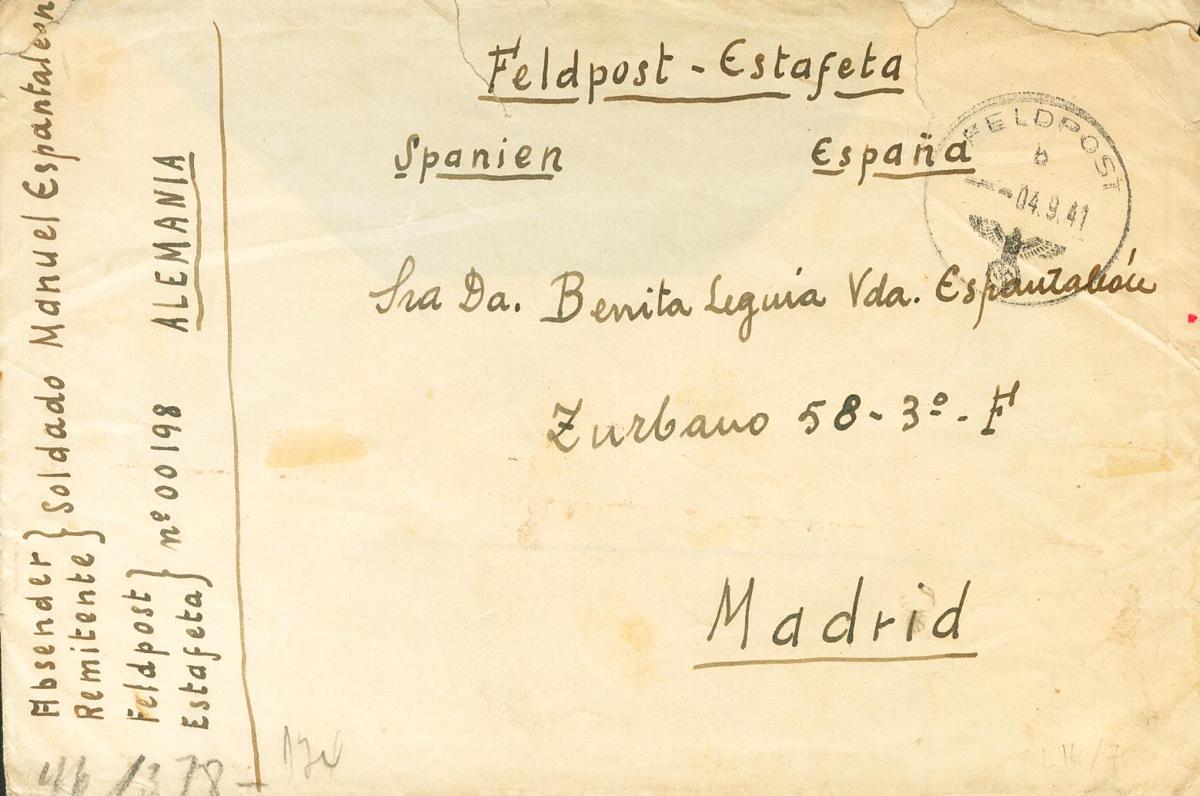 Feldpost - Estafeta
Spanien España
FELDPOST
b
04.9.41
Sra Da. Benita Leguia Vda. Espantaleón
Zurbano 58 - 3º - F
Madrid
Absender } Soldado Manuel Espantaleon
Remitente }
Feldpost } nº 00198 ALEMANIA
Estafeta }